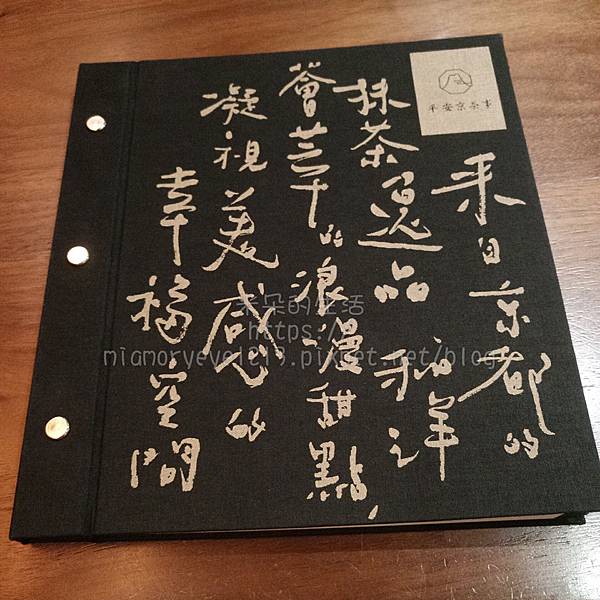 平安京茶事
來自京都的
抹茶逸品 和洋
薈萃的浪漫甜點,
凝視美感的
幸福空間
朵的生活
https://